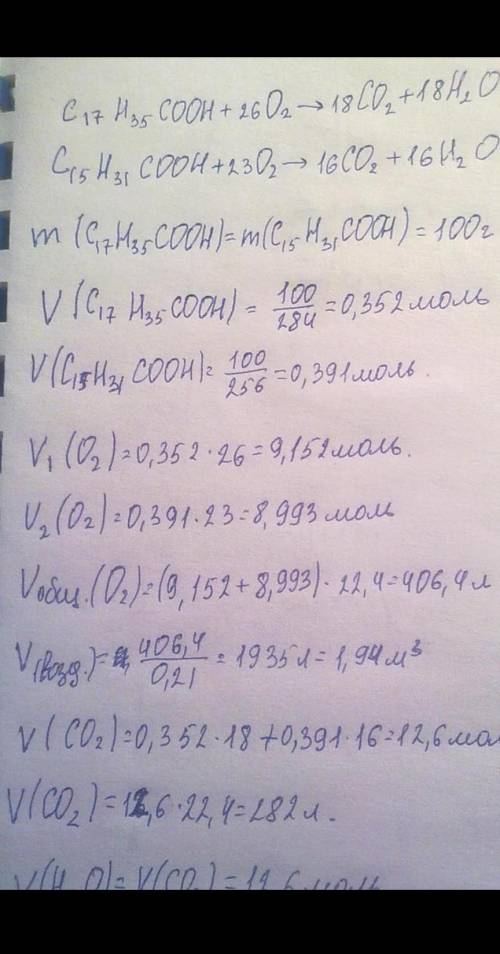 C₁₇H₃₅COOH+26O₂→18CO₂+18H₂O
C₁₅H₃₁COOH+23O₂→16CO₂+16H₂O
m(C₁₇H₃₅COOH)=m(C₁₅H₃₁COOH)=100г
V(C₁₇H₃₅COOH)=100/284=0,352моль
V(C₁₅H₃₁COOH)=100/256=0,391моль.
V₁(O₂)=0,352·26=9,152моль.
V₂(O₂)=0,391·23=8,993моль
Vобщ.(O₂)=(9,152+8,993)·22,4=406,4л
V(возд.)=406,4/0,21=1935л=1,94м³
V(CO₂)=0,352·18+0,391·16=12,6мол
V(CO₂)=12,6·22,4=282л.
V(H₂O)=V(CO₂)=12,6моль